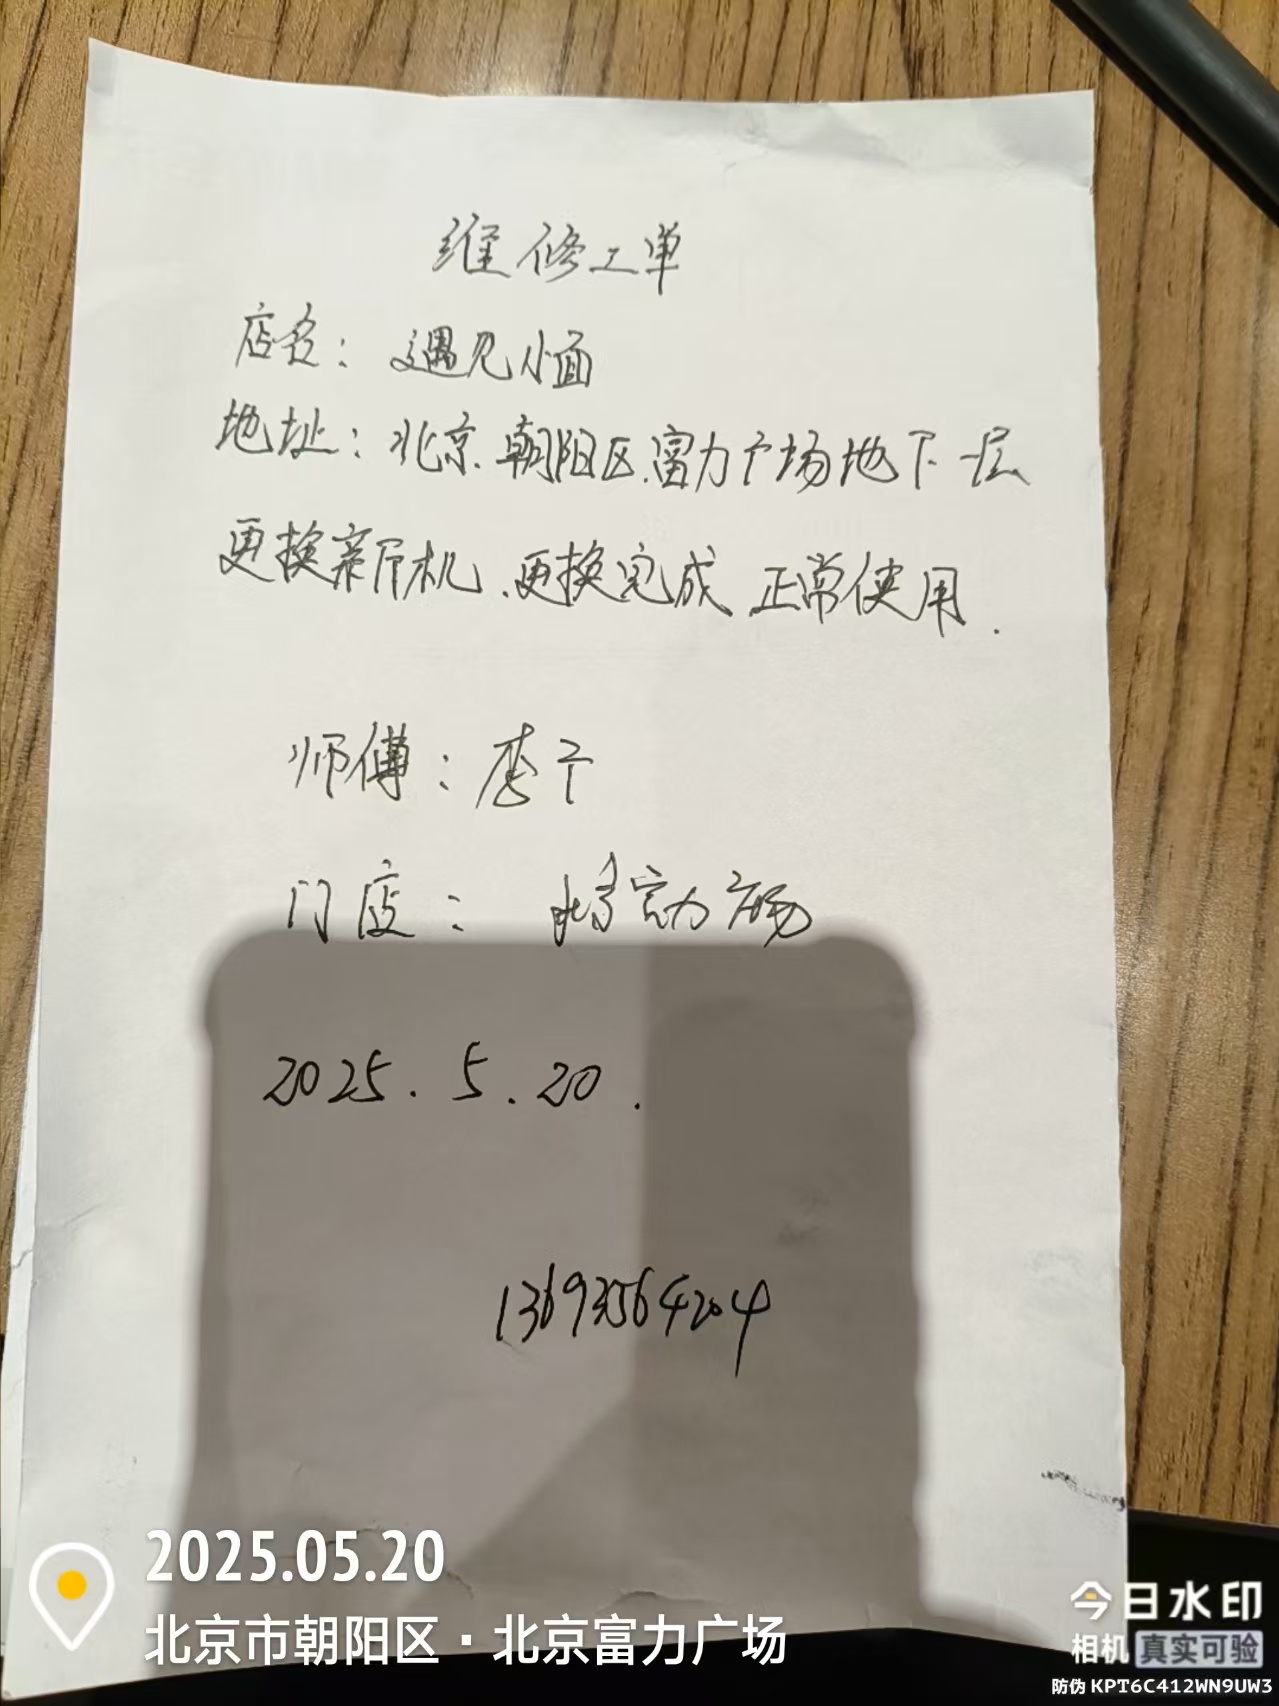 维修工单
店名：遇见小面
地址：北京.朝阳区.富力广场地下一层
更换新风机.更换完成 正常使用.
师傅：李
门店：北京富力广场
2025.5.20.
13693564204
2025.05.20
北京市朝阳区·北京富力广场
今日水印
相机 真实可验
防伪 KPT6C412WN9UW3